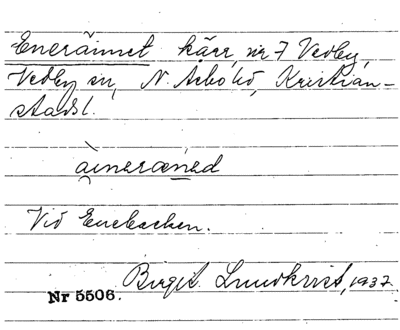 Enerännet kärr, nr 7 Vedby,
Vedby sn, N. Åsbo hd, Kristian-
stads l.
àineræned
Vid Enebacken.
Birgit Lundkvist, 1937
Nr 5506.